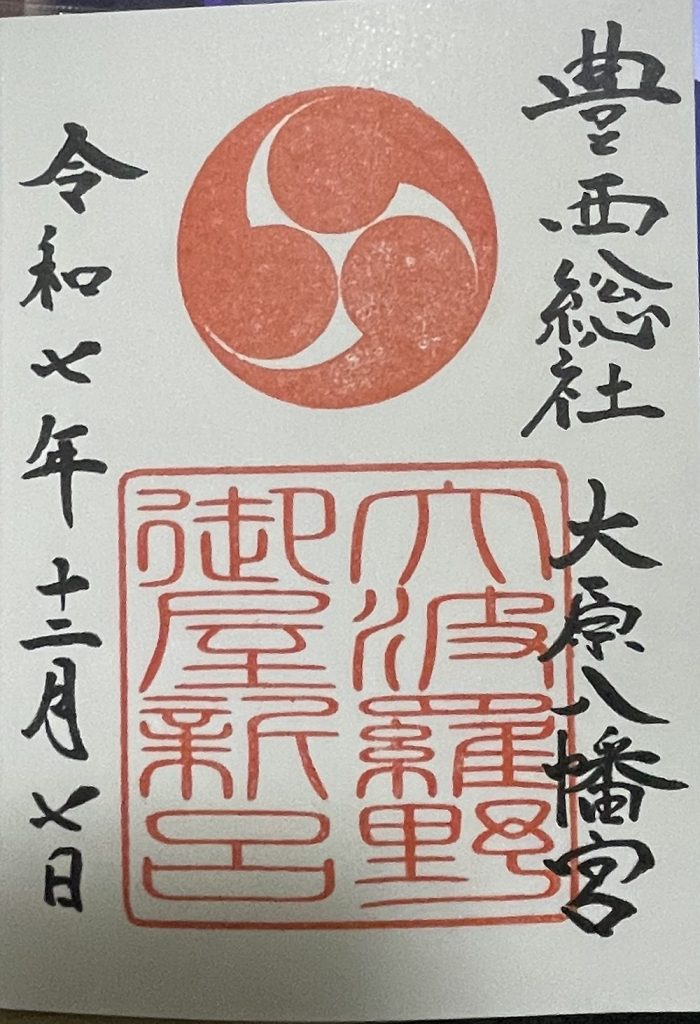 豊西総社 大原八幡宮
六波羅野
御屋新宮
令和七年 十二月 七日